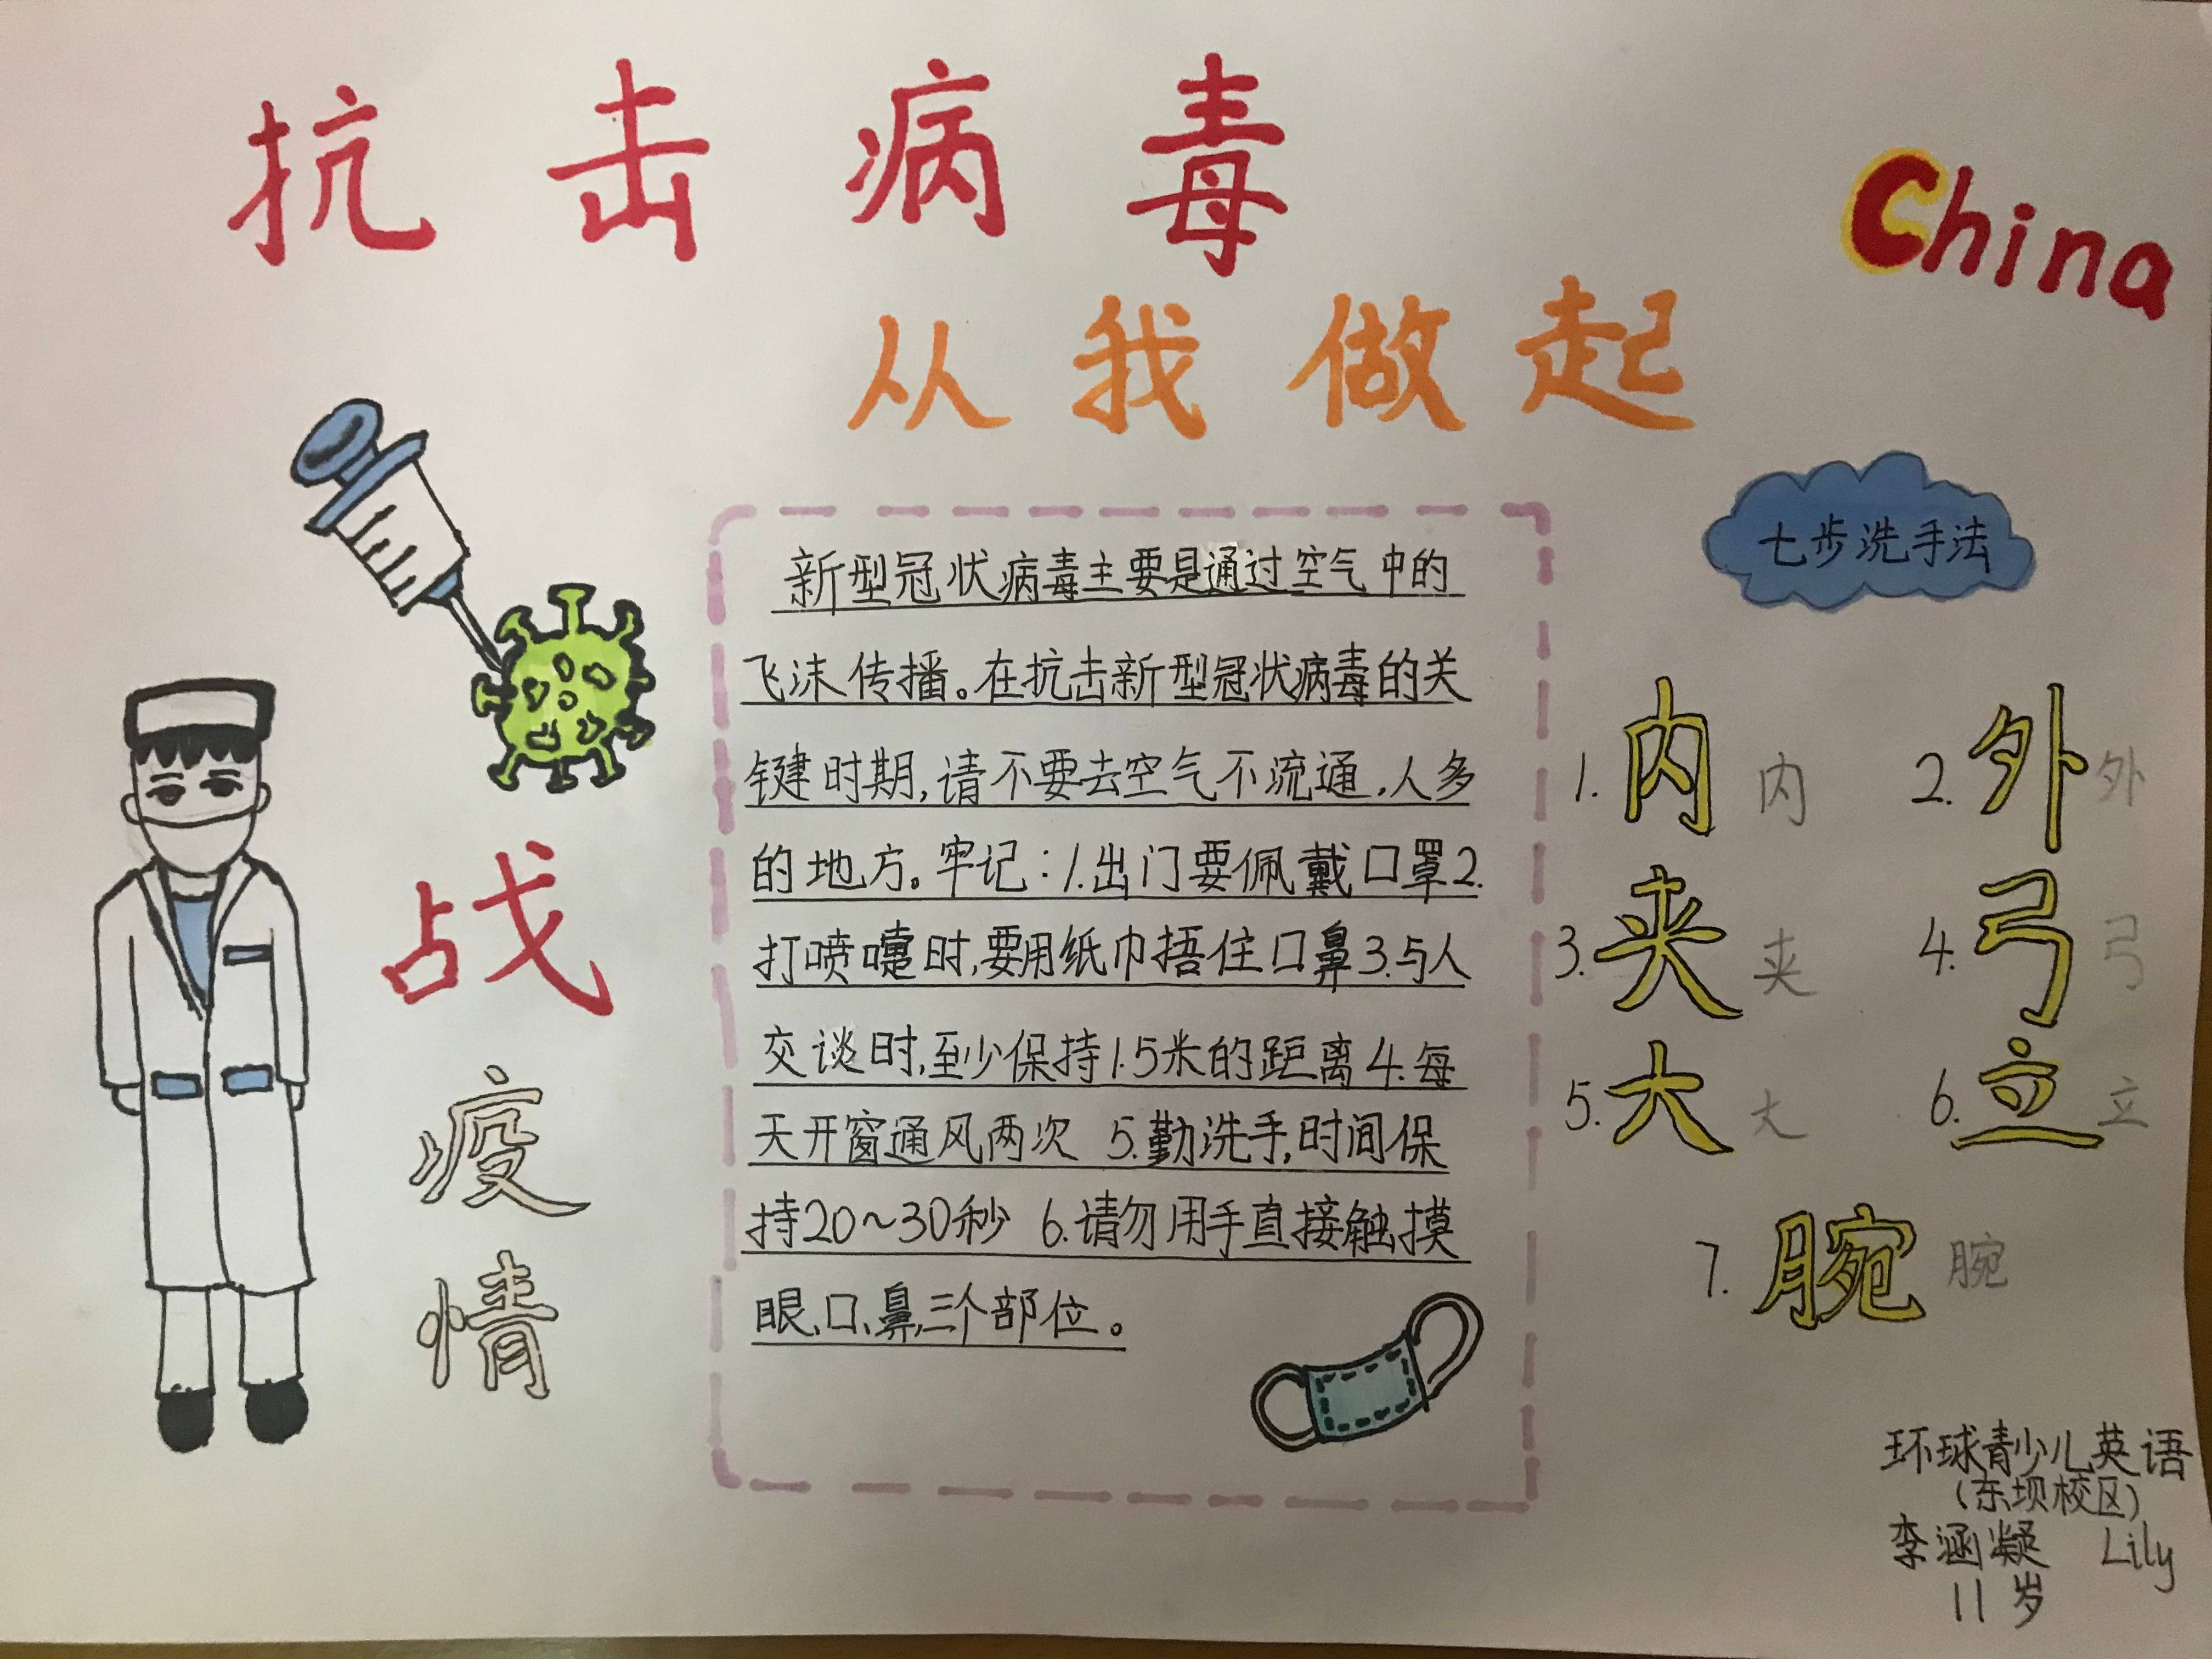 抗击病毒
China
从我做起
战
疫
情
新型冠状病毒主要是通过空气中的
飞沫传播。在抗击新型冠状病毒的关
键时期,请不要去空气不流通,人多
的地方。牢记:1.出门要佩戴口罩2.
打喷嚏时,要用纸巾捂住口鼻3.与人
交谈时,至少保持1.5米的距离4.每
天开窗通风两次 5.勤洗手,时间保
持20~30秒 6.请勿用手直接触摸
眼、口、鼻,三个部位。
七步洗手法
1.内 内 2.外 外
3.夹 夹 4.弓 弓
5.大 大 6.立 立
7.腕 腕
环球青少儿英语
(东坝校区)
李涵凝 Lily
11岁